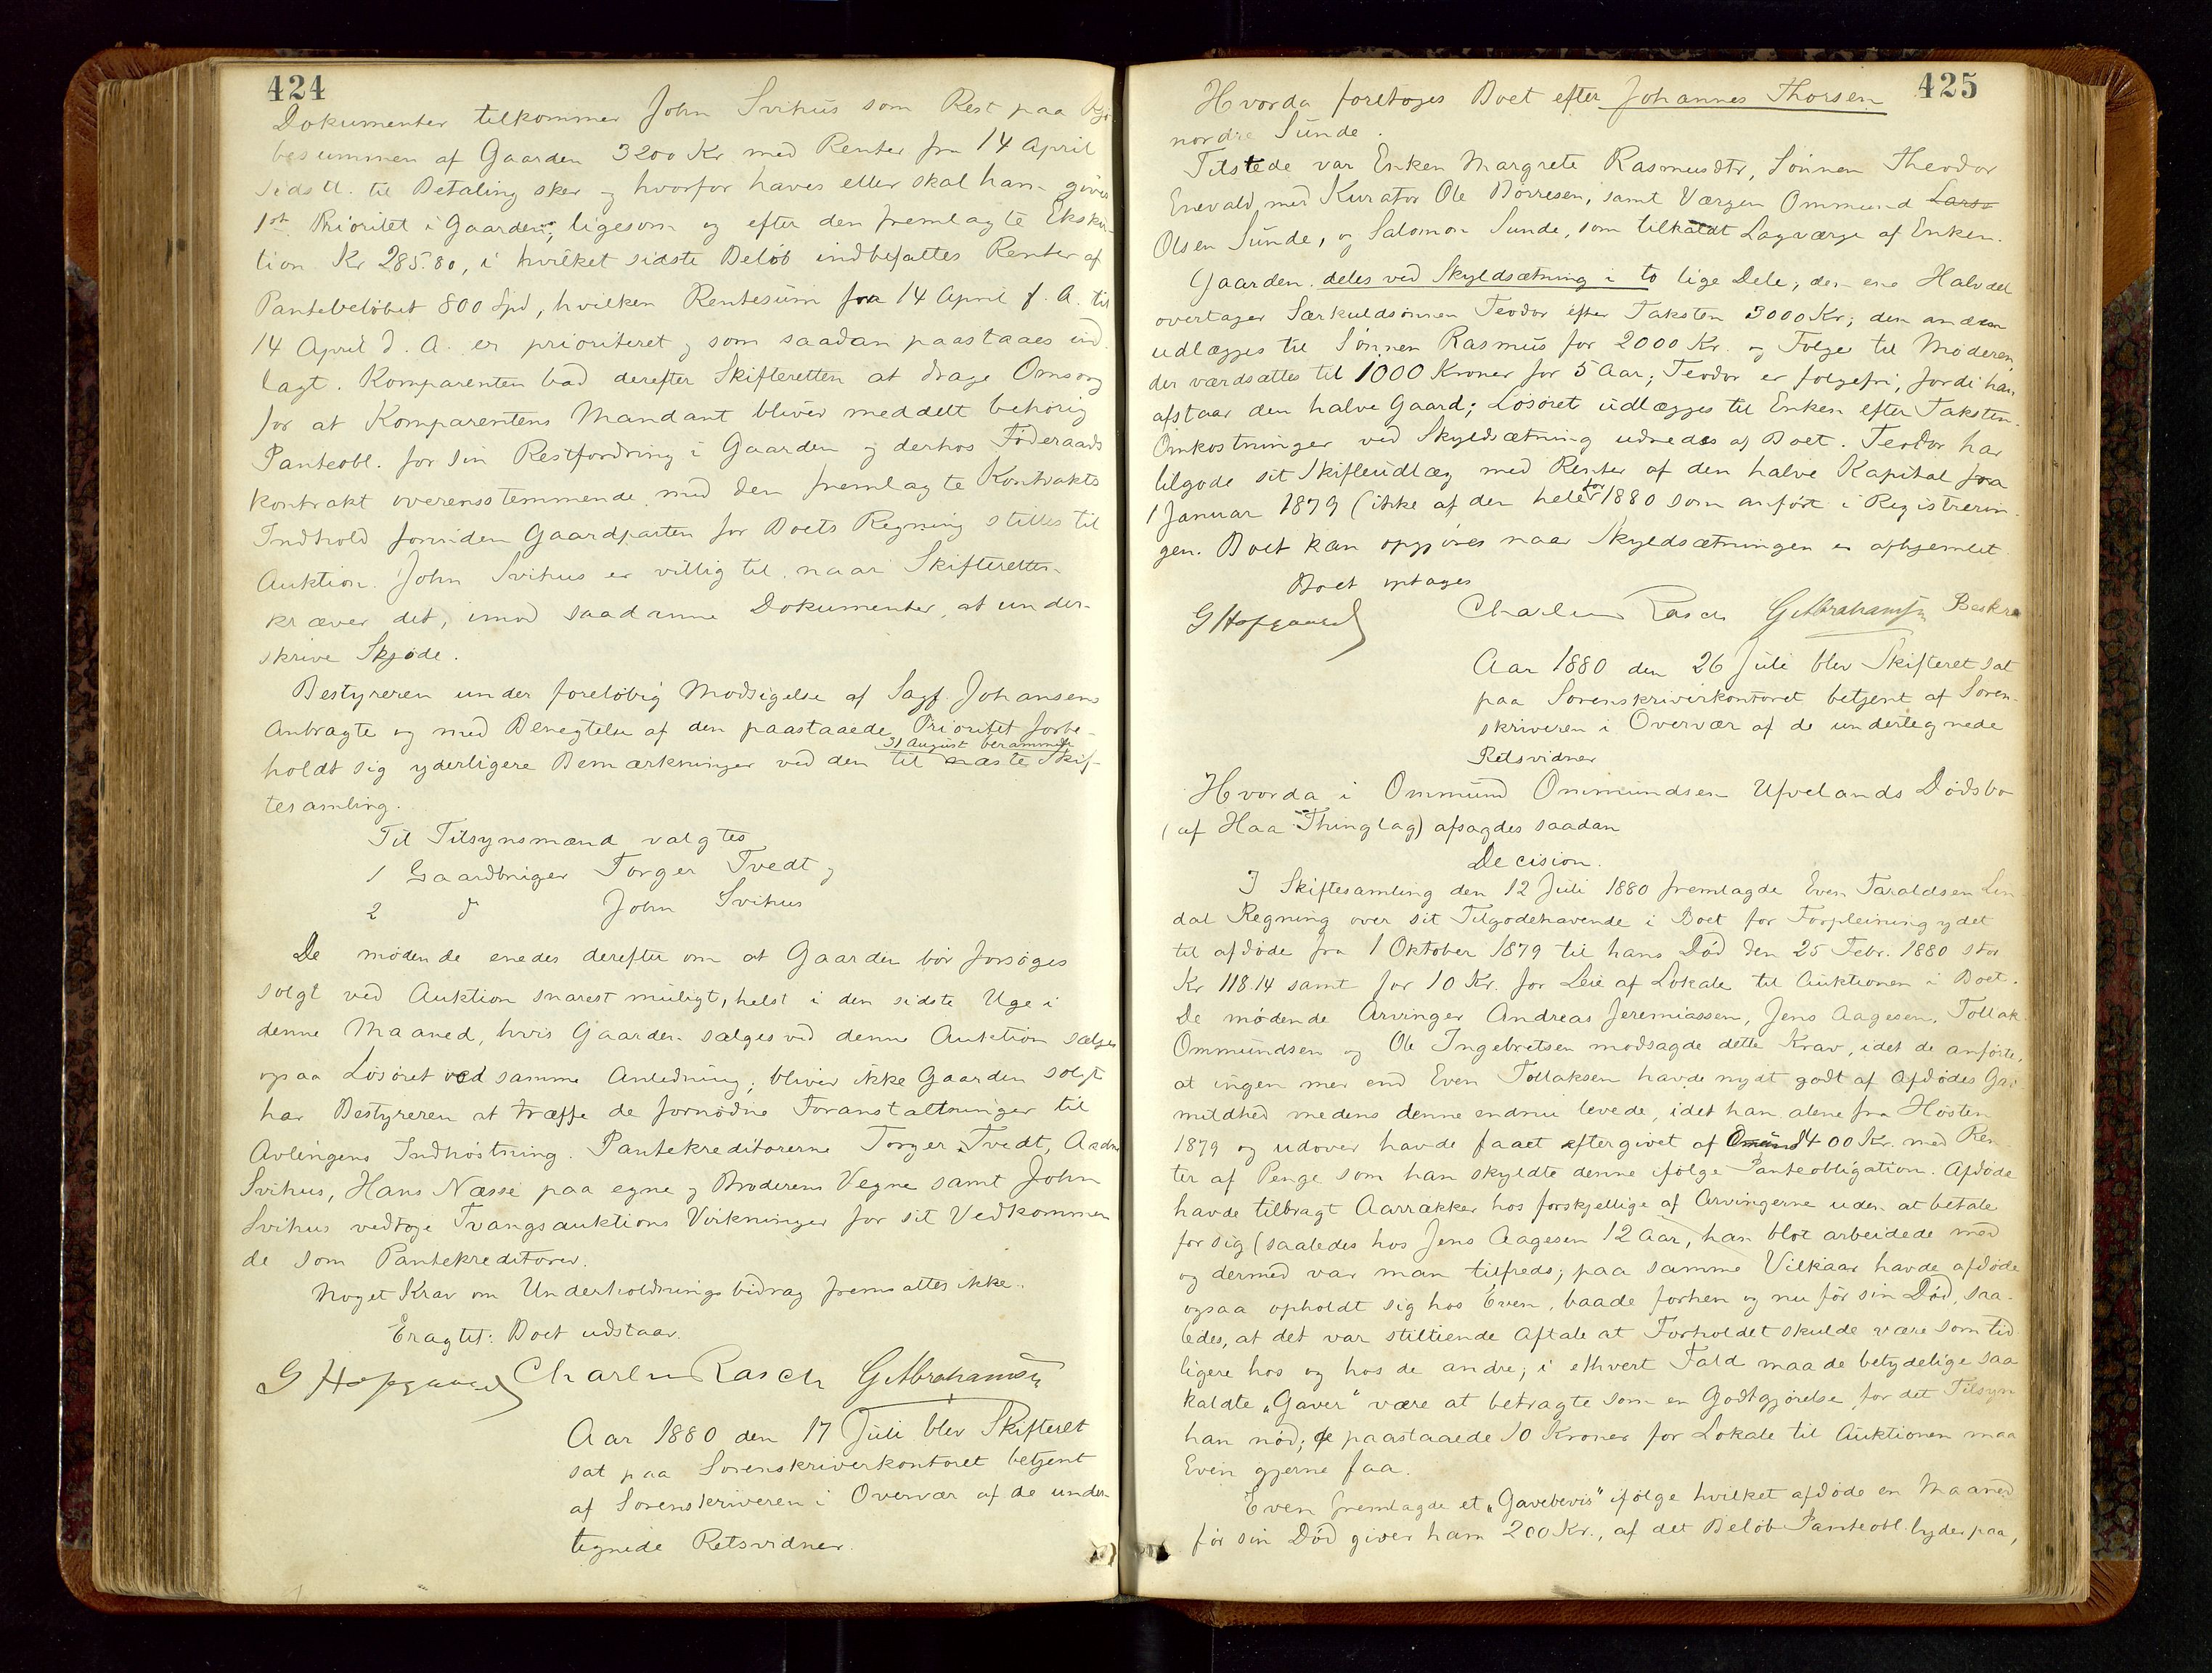 424
Dokumenter tilkommer John Svihus som Rest paa Kjø-
besummen af Gaarden 3200 Kr med Renter fra 14 April
sidstl. til Betaling sker og hvorfor haves eller skal han gives
1st Prioritet i Gaarden, ligesom og efter den fremlagte Ekseku-
tion Kr 285.80, i hvilket sidste Beløb indbefattes Renter af
Pantebeløbet 800 Spd, hvilken Rentesum fra 14 April f. A. til
14 April d. A. er prioriteret og som saadan paastaaes ind
lagt. Komparenten bad derefter Skifteretten at drage Omsorg
for at Komparentens Mandant bliver meddelt behørig
Panteobl. for sin Restfordring i Gaarden og derhos Føderaads
kontrakt overensstemmende med den fremlagte Kontrakts
Indhold forinden Gaardparten for Boets Regning stilles til
Auktion. John Svihus er villig til naar Skifteretten
kræver det, imod saadanne Dokumenter, at under-
skrive Skjøde.
Bestyreren under foreløbig Modsigelse af Sagf. Johansens
Anbragte og med Benegtelse af den paastaaede Prioritet forbe-
holdt sig yderligere Bemærkninger ved den til 31 August berammede næste Skif-
tesamling.
Til Tilsynsmænd valgtes
1 Gaardbruger Torger Tvedt og
2 d John Svihus
De mødende enedes derefter om at Gaarden bør forsøges
solgt ved Auktion snarest muligt, helst i den sidste Uge i
denne Maaned, hvis Gaarden sælges ved denne Auktion sælges
ogsaa Løsøret ved samme Anledning; bliver ikke Gaarden solgt
har Bestyreren at træffe de fornødne Foranstaltninger til
Avlingens Indhøstning. Pantekreditorerne Torger Tvedt, Aadne
Svihus, Hans Næsse paa egne og Broderens Vegne samt John
Svihus vedtoge Tvangsauktions Virkninger for sit Vedkommen
de som Pantekreditorer.
Noget Krav om Underholdningsbidrag fremsattes ikke.
Eragtet: Boet udstaar.
G Hofgaard Charles Rasch G Abrahamsen
Aar 1880 den 17 Juli blev Skifteret
sat paa Sorenskriverkontoret betjent
af Sorenskriveren i Overvær af de under-
tegnede Retsvidner.
425
Hvorda foretoges Boet efter Johannes Thorsen
nordre Sunde.
Tilstede var Enken Margrete Rasmusdtr, Sønnen Theodor
Enevald med Kurator Ole Børresen, samt Værgen Ommund Lars-
Olsen Sunde, og Salomon Sunde, som tilkaldt Lagværge af Enken.
Gaarden deles ved Skyldsætning i to lige Dele, den ene Halvdel
overtager Særkuldsønnen Teodor efter Taksten 3000 Kr; den anden
udlægges til Sønnen Rasmus for 2000 Kr. og Følge til Moderen,
der værdsættes til 1000 Kroner for 5 Aar; Teodor er følgefri, fordi han
afstaar den halve Gaard; Løsøret udlægges til Enken efter Taksten.
Omkostninger ved Skyldsætning udredes af Boet. Teodor har
tilgode sit Skifteudlæg med Renter af den halve Kapital fra
1 Januar 1879 (ikke af den hele for 1880 som anført i Registrerin-
gen. Boet kan opgjøres naar Skyldsætningen er afhjemlet.
Boet optages
G Hofgaard Charles Rasch G Abrahamsen Beskre
Aar 1880 den 26 Juli blev Skifteret sat
paa Sorenskriverkontoret betjent af Soren-
skriveren i Overvær af de undertegnede
Retsvidner
Hvorda i Ommund Ommundsen Ufvelands Dødsbo
(af Haa Thinglag) afsagdes saadan
Decision.
I Skiftesamling den 12 Juli 1880 fremlagde Even Taraldsen Lin
dal Regning over sit Tilgodehavende i Boet for Forpleining ydet
til afdøde fra 1 Oktober 1879 til hans Død den 25 Febr. 1880 stor
Kr 118.14 samt for 10 Kr. for Leie af Lokale til Auktionen i Boet.
De mødende Arvinger Andreas Jeremiassen, Jens Aagesen, Tollak
Ommundsen og Ole Ingebretsen modsagde dette Krav, idet de anførte,
at ingen mer end Even Tollaksen havde nydt godt af Afdødes Gav
mildhed medens denne endnu levede, idet han alene fra Høsten
1879 og udover havde faaet eftergivet af 1400 Kr. med Ren
ter af Penge som han skyldte denne ifølge Panteobligation. Afdøde
havde tilbragt Aarrækker hos forskjellige af Arvingerne uden at betale
for sig (saaledes hos Jens Aagesen 12 Aar, han blot arbeidede med
og dermed var man tilfreds; paa samme Vilkaar havde afdøde
ogsaa opholdt sig hos Even, baade forhen og nu før sin Død, saa-
ledes, at det var stiltiende Aftale at Forholdet skulde være som tid
ligere hos og hos de andre; i ethvert Fald maa de betydelige saa
kaldte „Gaver" være at betragte som en Godtgjørelse for det Tilsyn
han nød; de paastaaede 10 Kroner for Lokale til Auktionen maa
Even gjerne faa.
Even fremlagde et „Gavebevis" ifølge hvilket afdøde en Maaned
før sin Død giver ham 200 Kr., af det Beløb Panteobl. lyder paa,